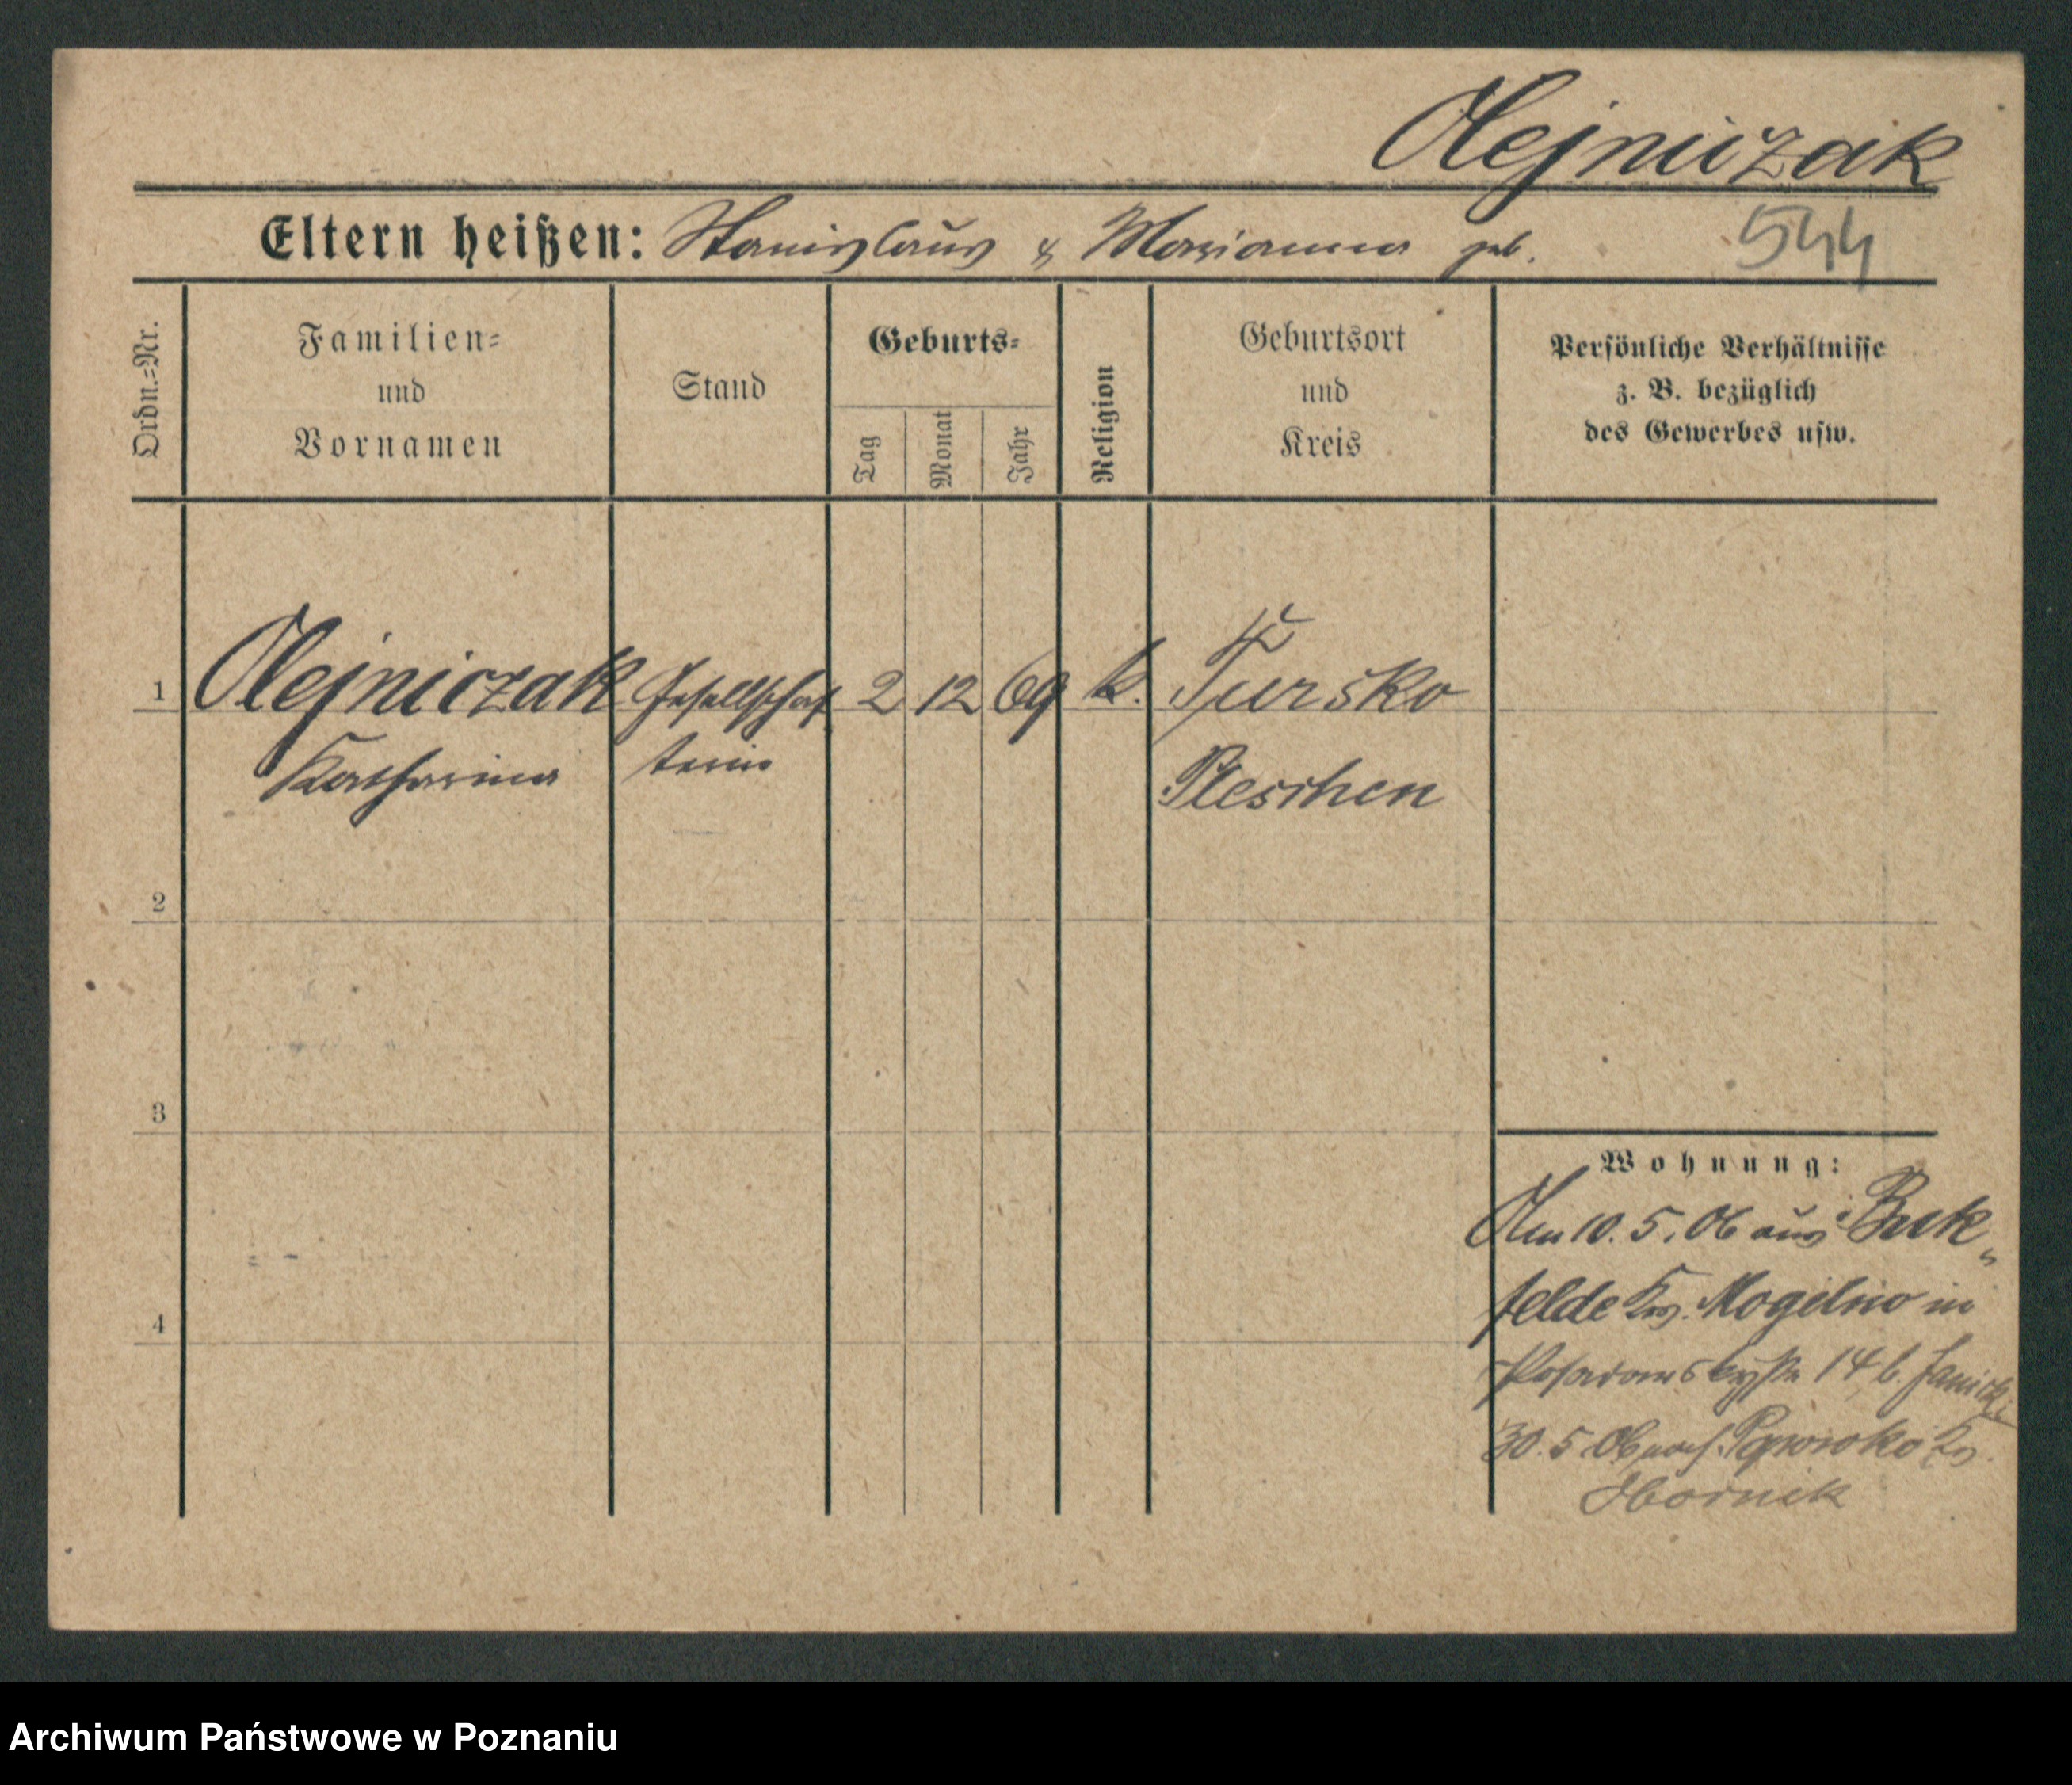 Olejniczak
Eltern heißen: Stanislaus & Marianna geb. 544
Ordn.=Nr.
Familien=
und
Vornamen
Stand
Geburts=
Tag
Monat
Jahr
Religion
Geburtsort
und
Kreis
Persönliche Verhältnisse
z. B. bezüglich
des Gewerbes usw.
1 Olejniczak Gesellschaf 2 12 69 k. Tursko
Katharina terin Pleschen
2
3
4
Wohnung:
Am 10. 5. 06 aus
felde Krs. Mogilno in
14 b. Janicki
30. 5. 06 nach Krs.
Obornik
Archiwum Państwowe w Poznaniu